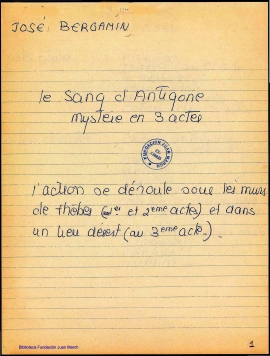 JOSÉ BERGAMIN
le Sang d'Antigone
mystère en 3 actes
FUNDACIÓN JUAN MARCH
l'action se déroule sous les murs
de Thèbes (1er et 2ème actes) et dans
un lieu désert (au 3ème acte).
Biblioteca Fundación Juan March
1